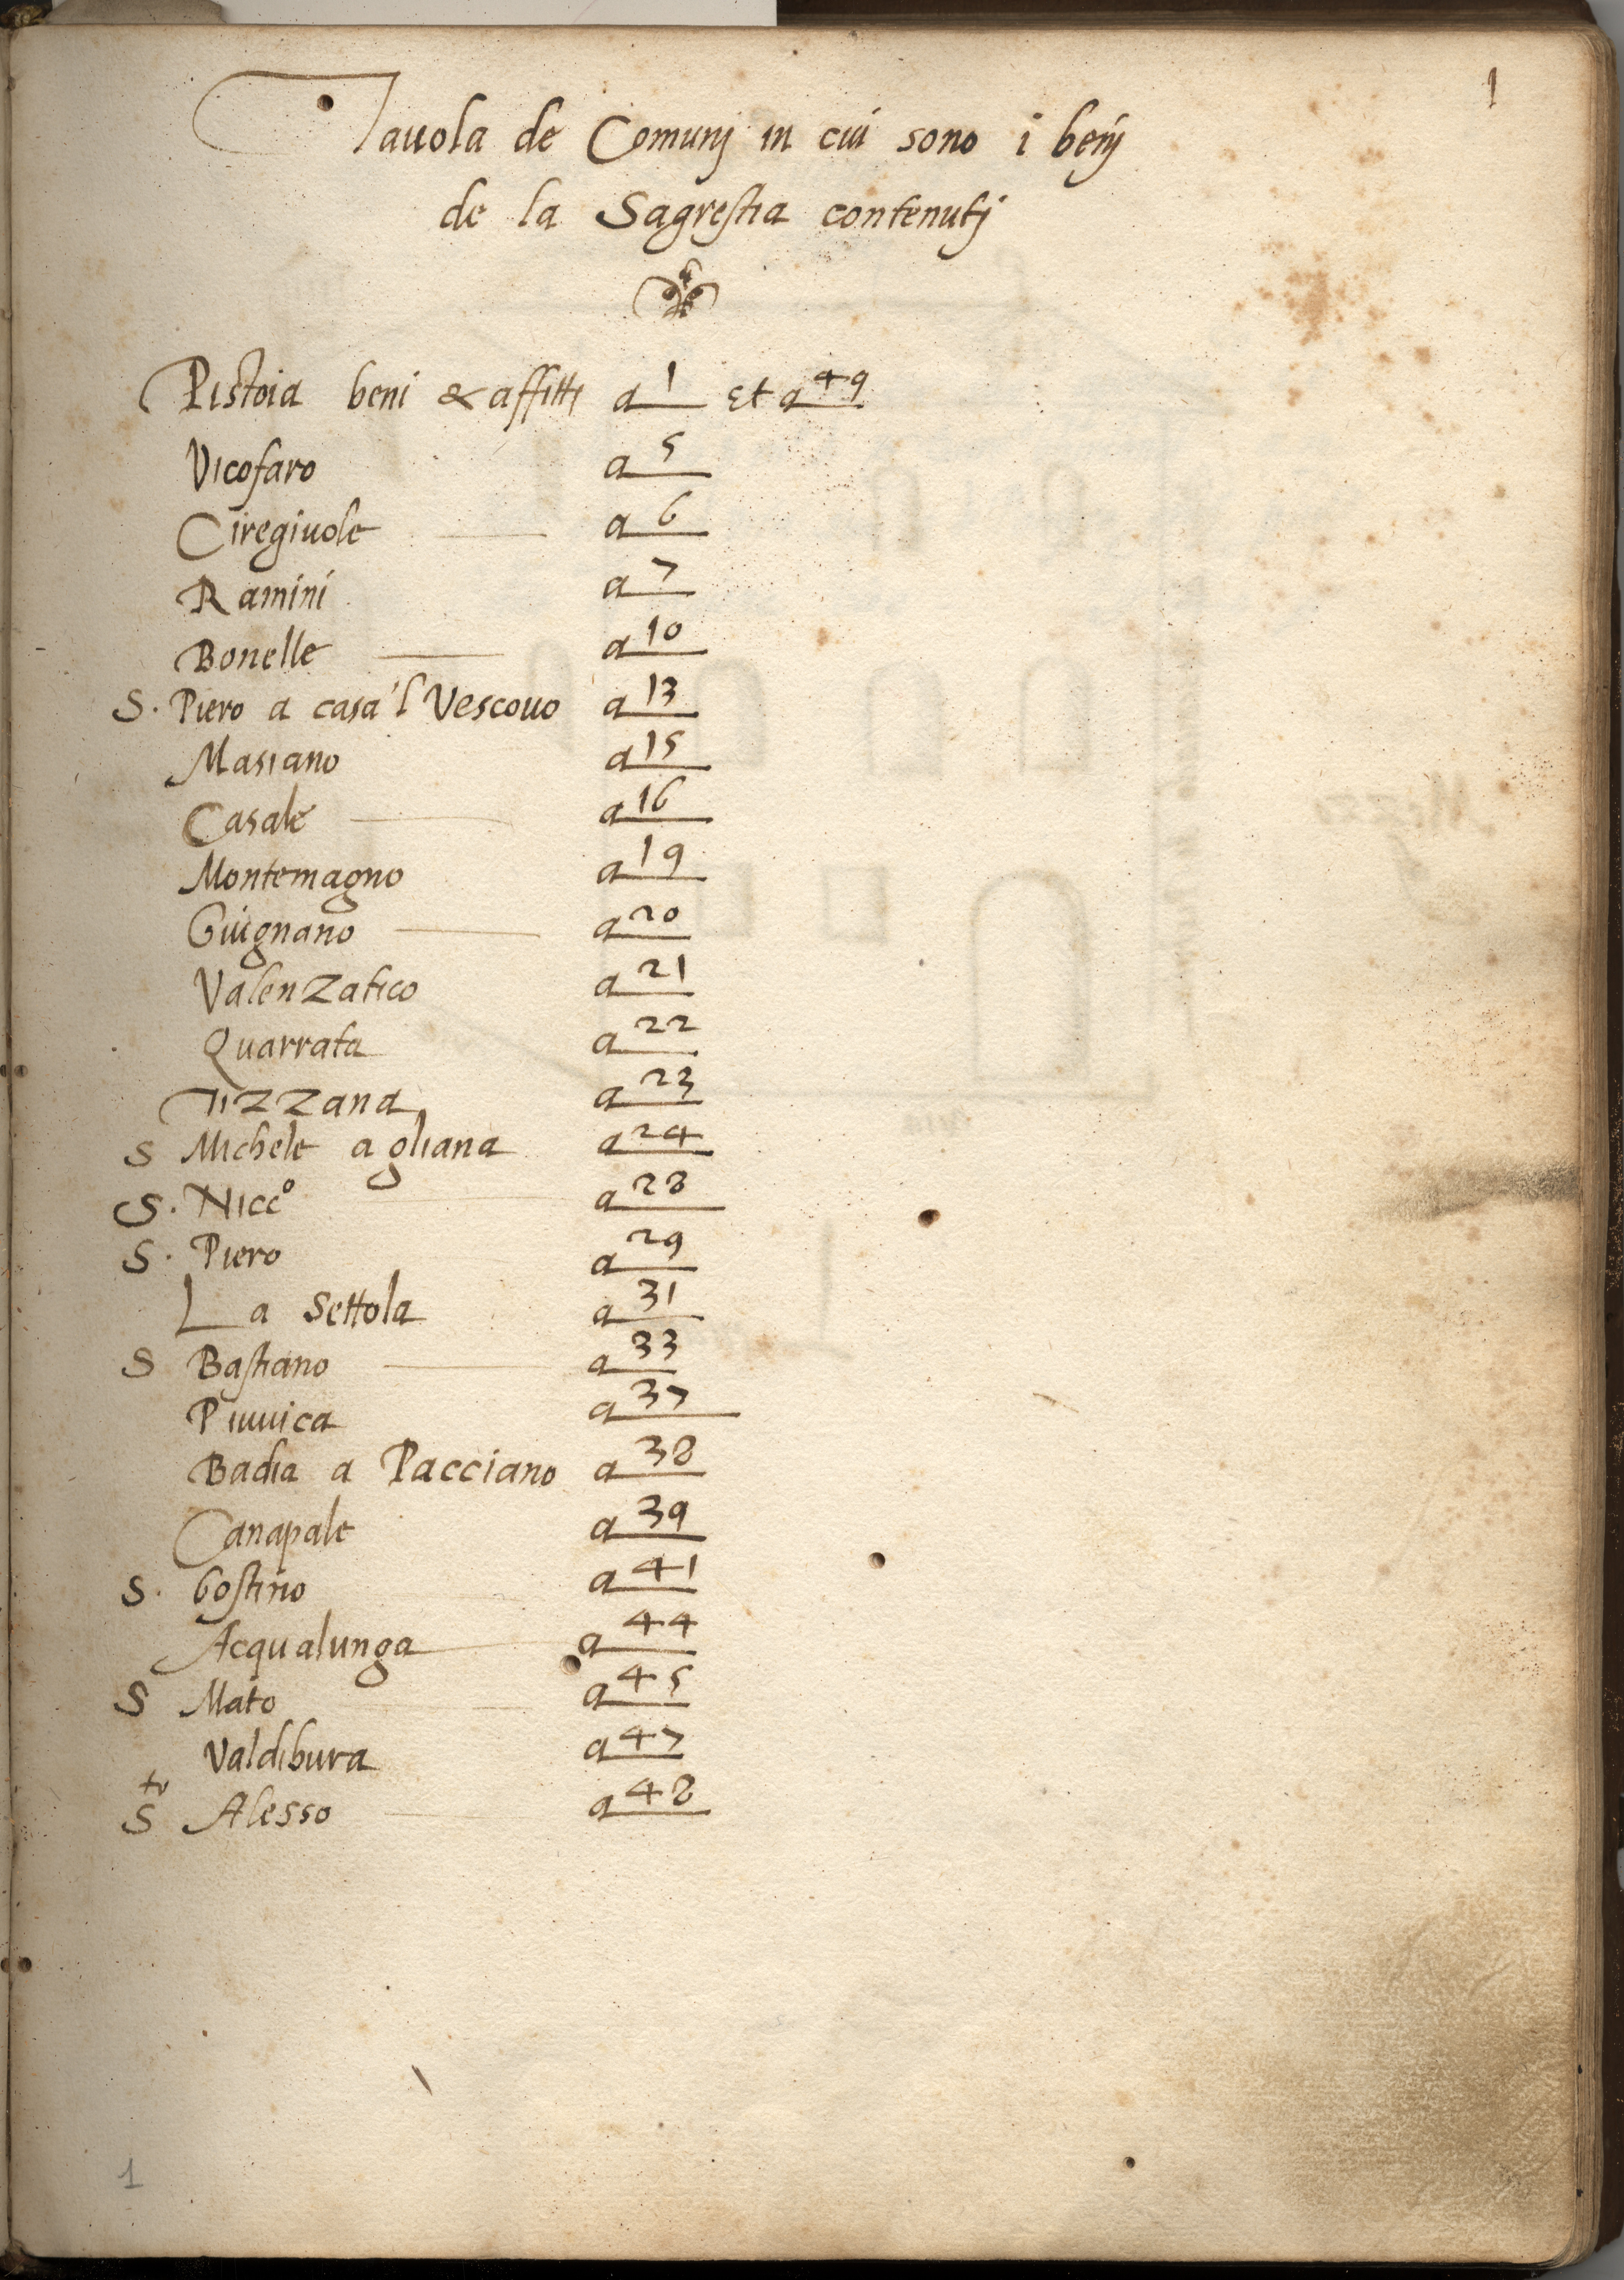 1
Tauola de Comunj in cui sono i benj
de la Sagrestia contenutj
Pistoia beni & affitti a 1 et a 49
Vicofaro a 5
Ciregiuole a 6
Ramini a 7
Bonelle a 10
S. Piero a casa 'l Vescouo a 13
Masiano a 15
Casale a 16
Montemagno a 19
Giugnano a 20
Valenzatico a 21
Quarrata a 22
Tizzana a 23
S Michele agliana a 24
S. Nicco a 28
S. Piero a 29
La Settola a 31
S Bastiano a 33
Piuuica a 37
Badia a Pacciano a 38
Canapale a 39
S. Gostino a 41
Acqualunga a 44
S Mato a 45
Valdibura a 47
Sto Alesso a 48
1